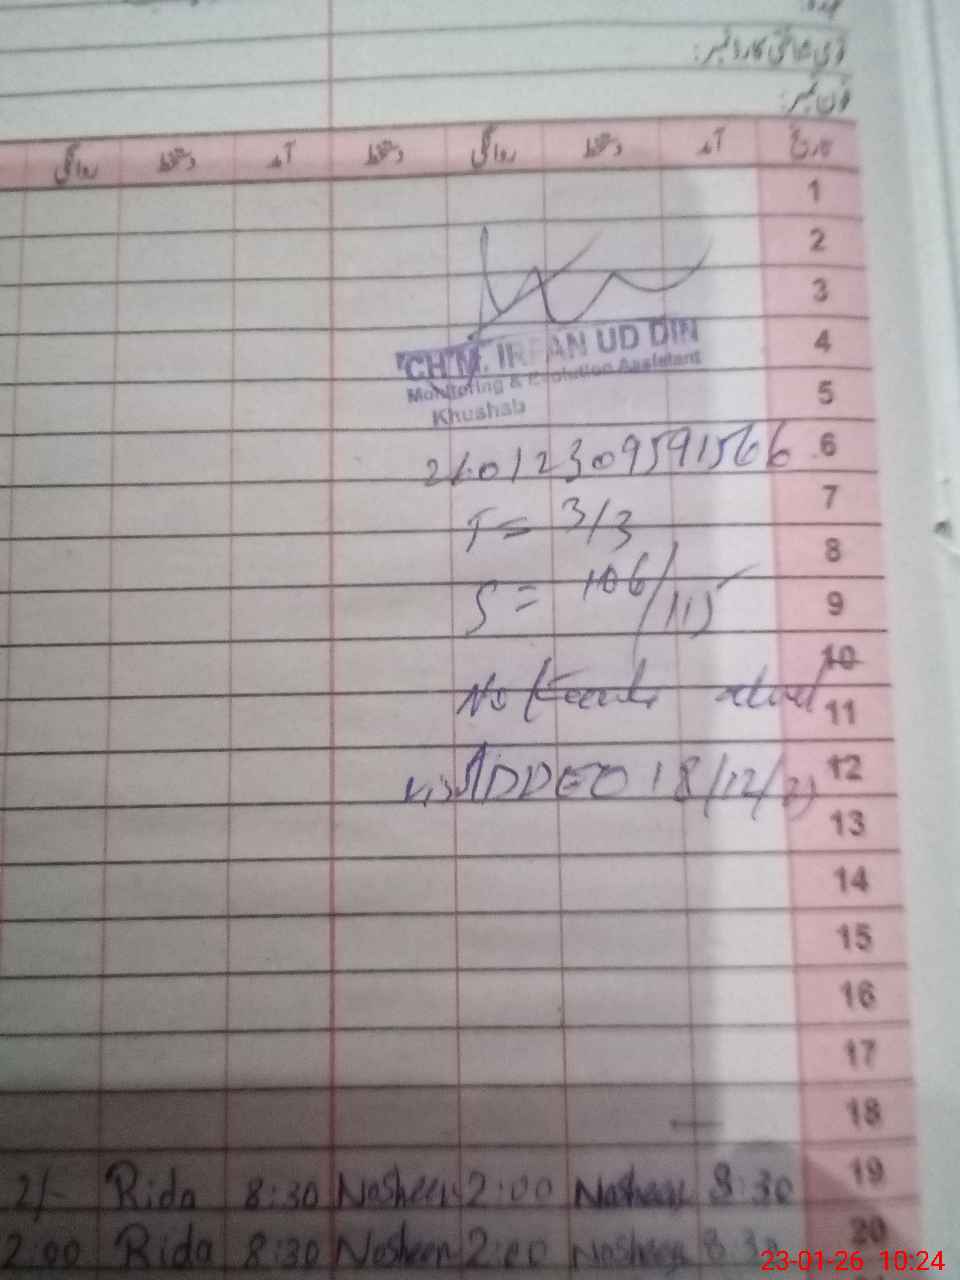 قومی شناختی کارڈ نمبر:
فون نمبر:
تاریخ آمد دستخط روانگی دستخط آمد دستخط روانگی
1
2
3
4
CH M. IRFAN UD DIN
Monitoring & Evolution Assistant
5
Khushab
6
T = 3/3
7
8
S = 106/115
9
10
No
11
ADDEO 18/12/
12
13
14
15
16
17
18
2/- Rida 8:30 Nosheen 2:00 Nosheen 8:30 19
2:00 Rida 8:30 Nosheen 2:00 Nosheen 8:30 20
23-01-26 10:24